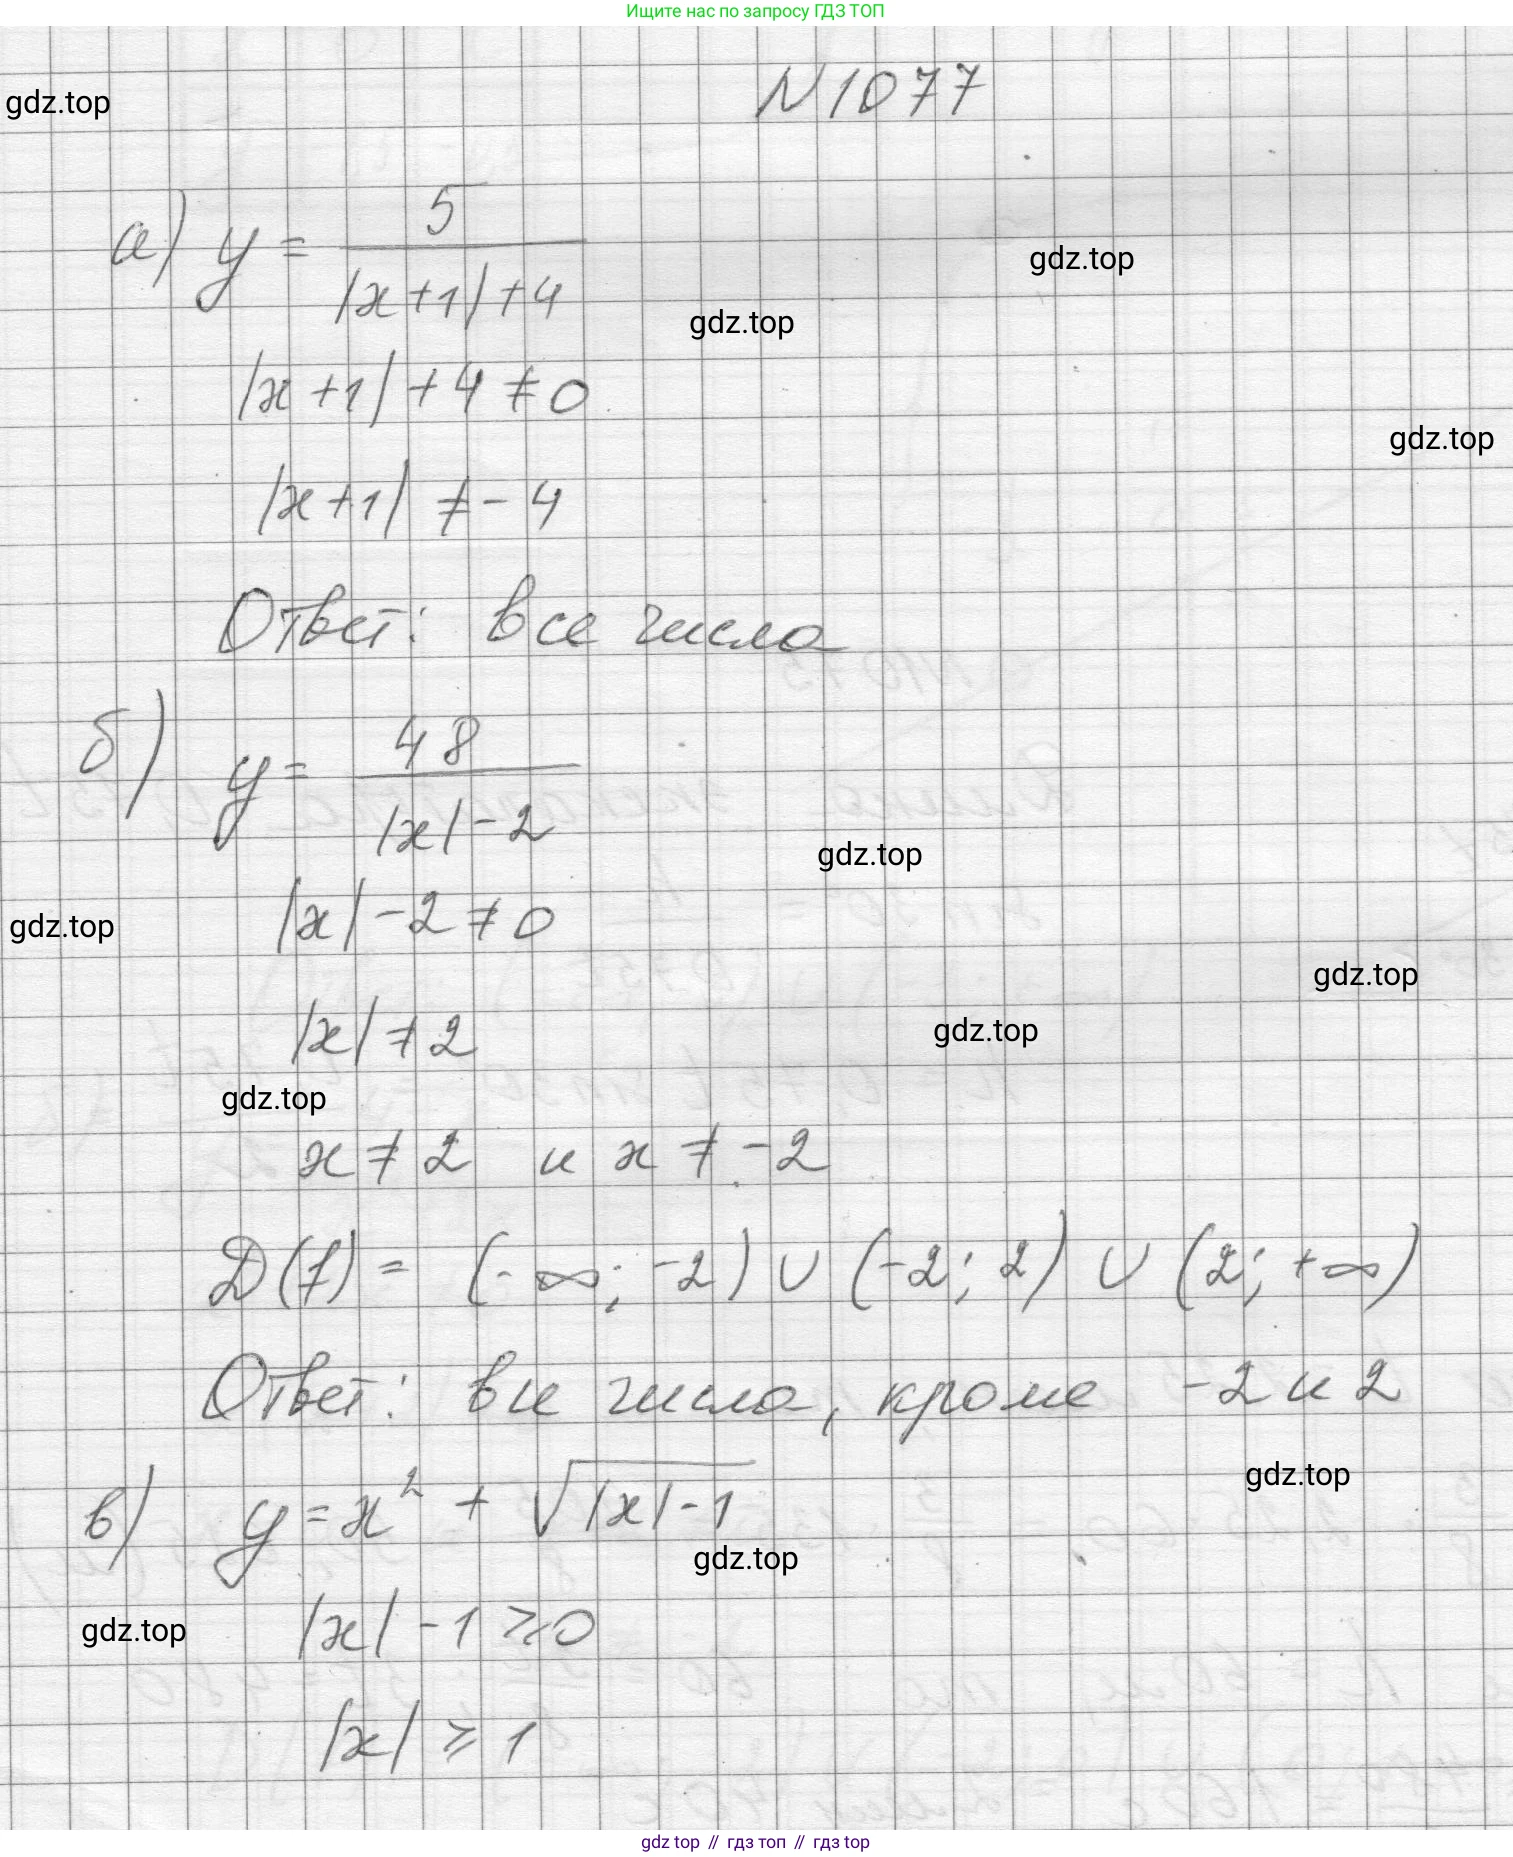 Ищите нас по запросу ГДЗ ТОП
N 1077
gdz.top
а) y = 5 / (|x+1|+4)
gdz.top
gdz.top
|x+1|+4≠0
gdz.top
|x+1| ≠ -4
Ответ: все числа
б) y = 48 / (|x|-2)
gdz.top
|x|-2≠0
gdz.top
gdz.top
|x|≠2
gdz.top
gdz.top
x≠2 и x≠-2
D(f) = (-∞; -2) ∪ (-2; 2) ∪ (2; +∞)
Ответ: все числа, кроме -2 и 2
gdz.top
в) y = x² + √(|x|-1)
gdz.top
|x|-1≥0
gdz.top
|x| ≥ 1
gdz top // гдз топ // гдз top